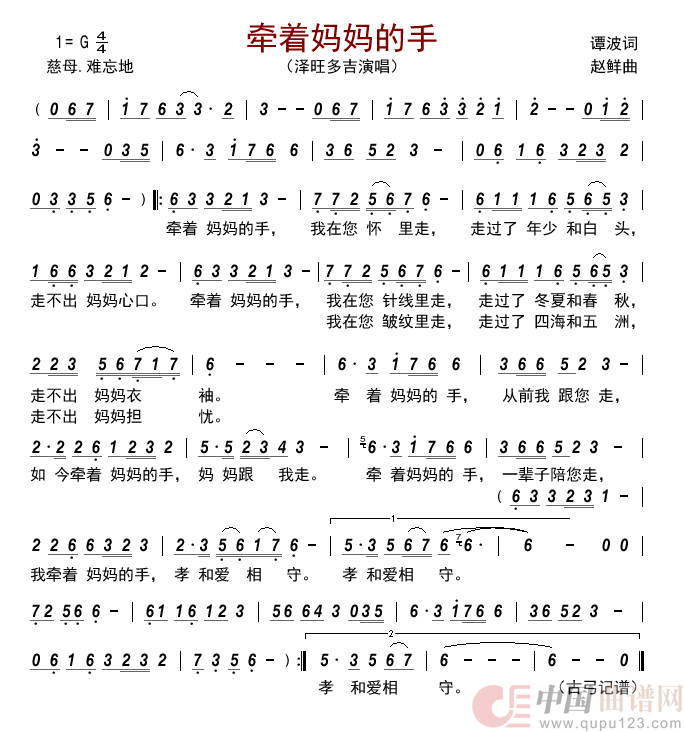 牵着妈妈的手
1= G 4/4 谭波词
慈母.难忘地 （泽旺多吉演唱） 赵鲜曲
( 0 6 7 | 1 7 6 3 3 · 2 | 3 - - 0 6 7 | 1 7 6 3 3 2 1 | 2 - - 0 1 2 |
3 - - 0 3 5 | 6 · 3 1 7 6 6 | 3 6 5 2 3 - | 0 6 1 6 3 2 3 2 |
0 3 3 5 6 - ) ‖: 6 3 3 2 1 3 - | 7 7 2 5 6 7 6 - | 6 1 1 1 6 5 6 5 3 |
牵着 妈妈的手， 我在您 怀 里走， 走过了 年少 和白 头，
1 6 6 3 2 1 2 - | 6 3 3 2 1 3 - | 7 7 2 5 6 7 6 - | 6 1 1 1 6 5 6 5 3 |
走不出 妈妈心口。 牵着 妈妈的手， 我在您 针线里走， 走过了 冬夏和春 秋，
我在您 皱纹里走， 走过了 四海和五 洲，
2 2 3 5 6 7 1 7 | 6 - - - | 6 · 3 1 7 6 6 | 3 6 6 5 2 3 - |
走不出 妈妈衣 袖。 牵 着 妈妈的 手， 从前我 跟您 走，
走不出 妈妈担 忧。
2 · 2 2 6 1 2 3 2 | 5 · 5 2 3 4 3 - | 5 6 · 3 1 7 6 6 | 3 6 6 5 2 3 - |
如 今牵着 妈妈的手， 妈 妈跟 我走。 牵 着妈妈的 手， 一辈子陪您走，
( 6 3 3 2 3 1 -
2 2 6 6 3 2 3 | 2 · 3 5 6 1 7 - | 1 5 · 3 5 6 7 6 7 6 · | 6 - 0 0 |
我牵着 妈妈的手， 孝 和爱 相 守。 孝 和爱相 守。
7 2 5 6 6 - | 6 1 1 6 1 2 3 | 5 6 6 4 3 0 3 5 | 6 · 3 1 7 6 6 | 3 6 5 2 3 - |
0 6 1 6 3 2 3 2 | 7 · 3 5 6 - ) :‖ 2 5 · 3 5 6 7 | 6 - - - | 6 - - 0 ‖
孝 和爱相 守。 （古弓记谱）
中国曲谱网
www.qupu123.com